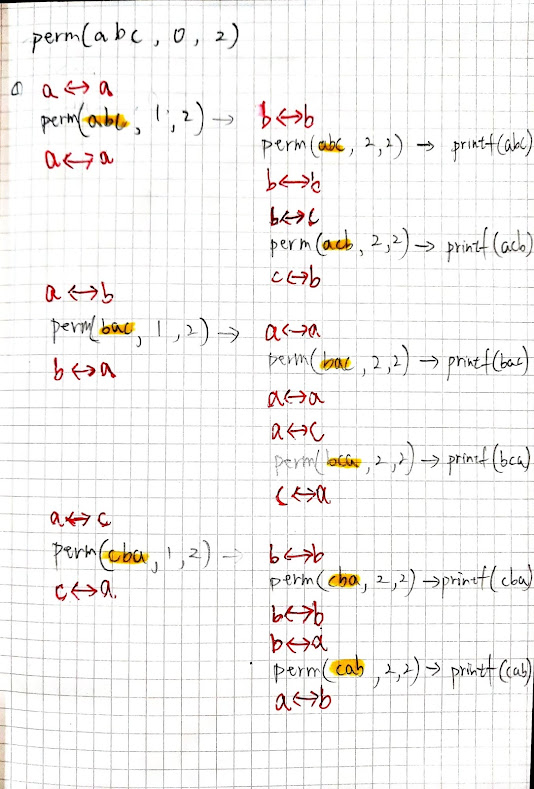 perm(abc, 0, 2)
① a↔a
perm(abc, 1, 2) → b↔b
a↔a perm(abc, 2,2) → printf(abc)
b↔c
b↔c
perm(acb, 2,2) → printf(acb)
c↔b
a↔b
perm(bac, 1, 2) → a↔a
b↔a perm(bac, 2,2) → printf(bac)
a↔a
a↔c
perm(bca, 2,2) → printf(bca)
c↔a
a↔c
perm(cba, 1, 2) → b↔b
c↔a. perm(cba, 2,2) → printf(cba)
b↔b
b↔a
perm(cab, 2,2) → printf(cab)
a↔b